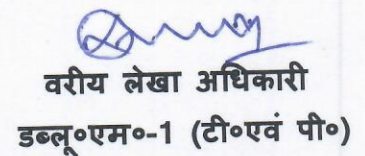 वरीय लेखा अधिकारी
डब्लू०एम०-1 (टी०एवं पी०)